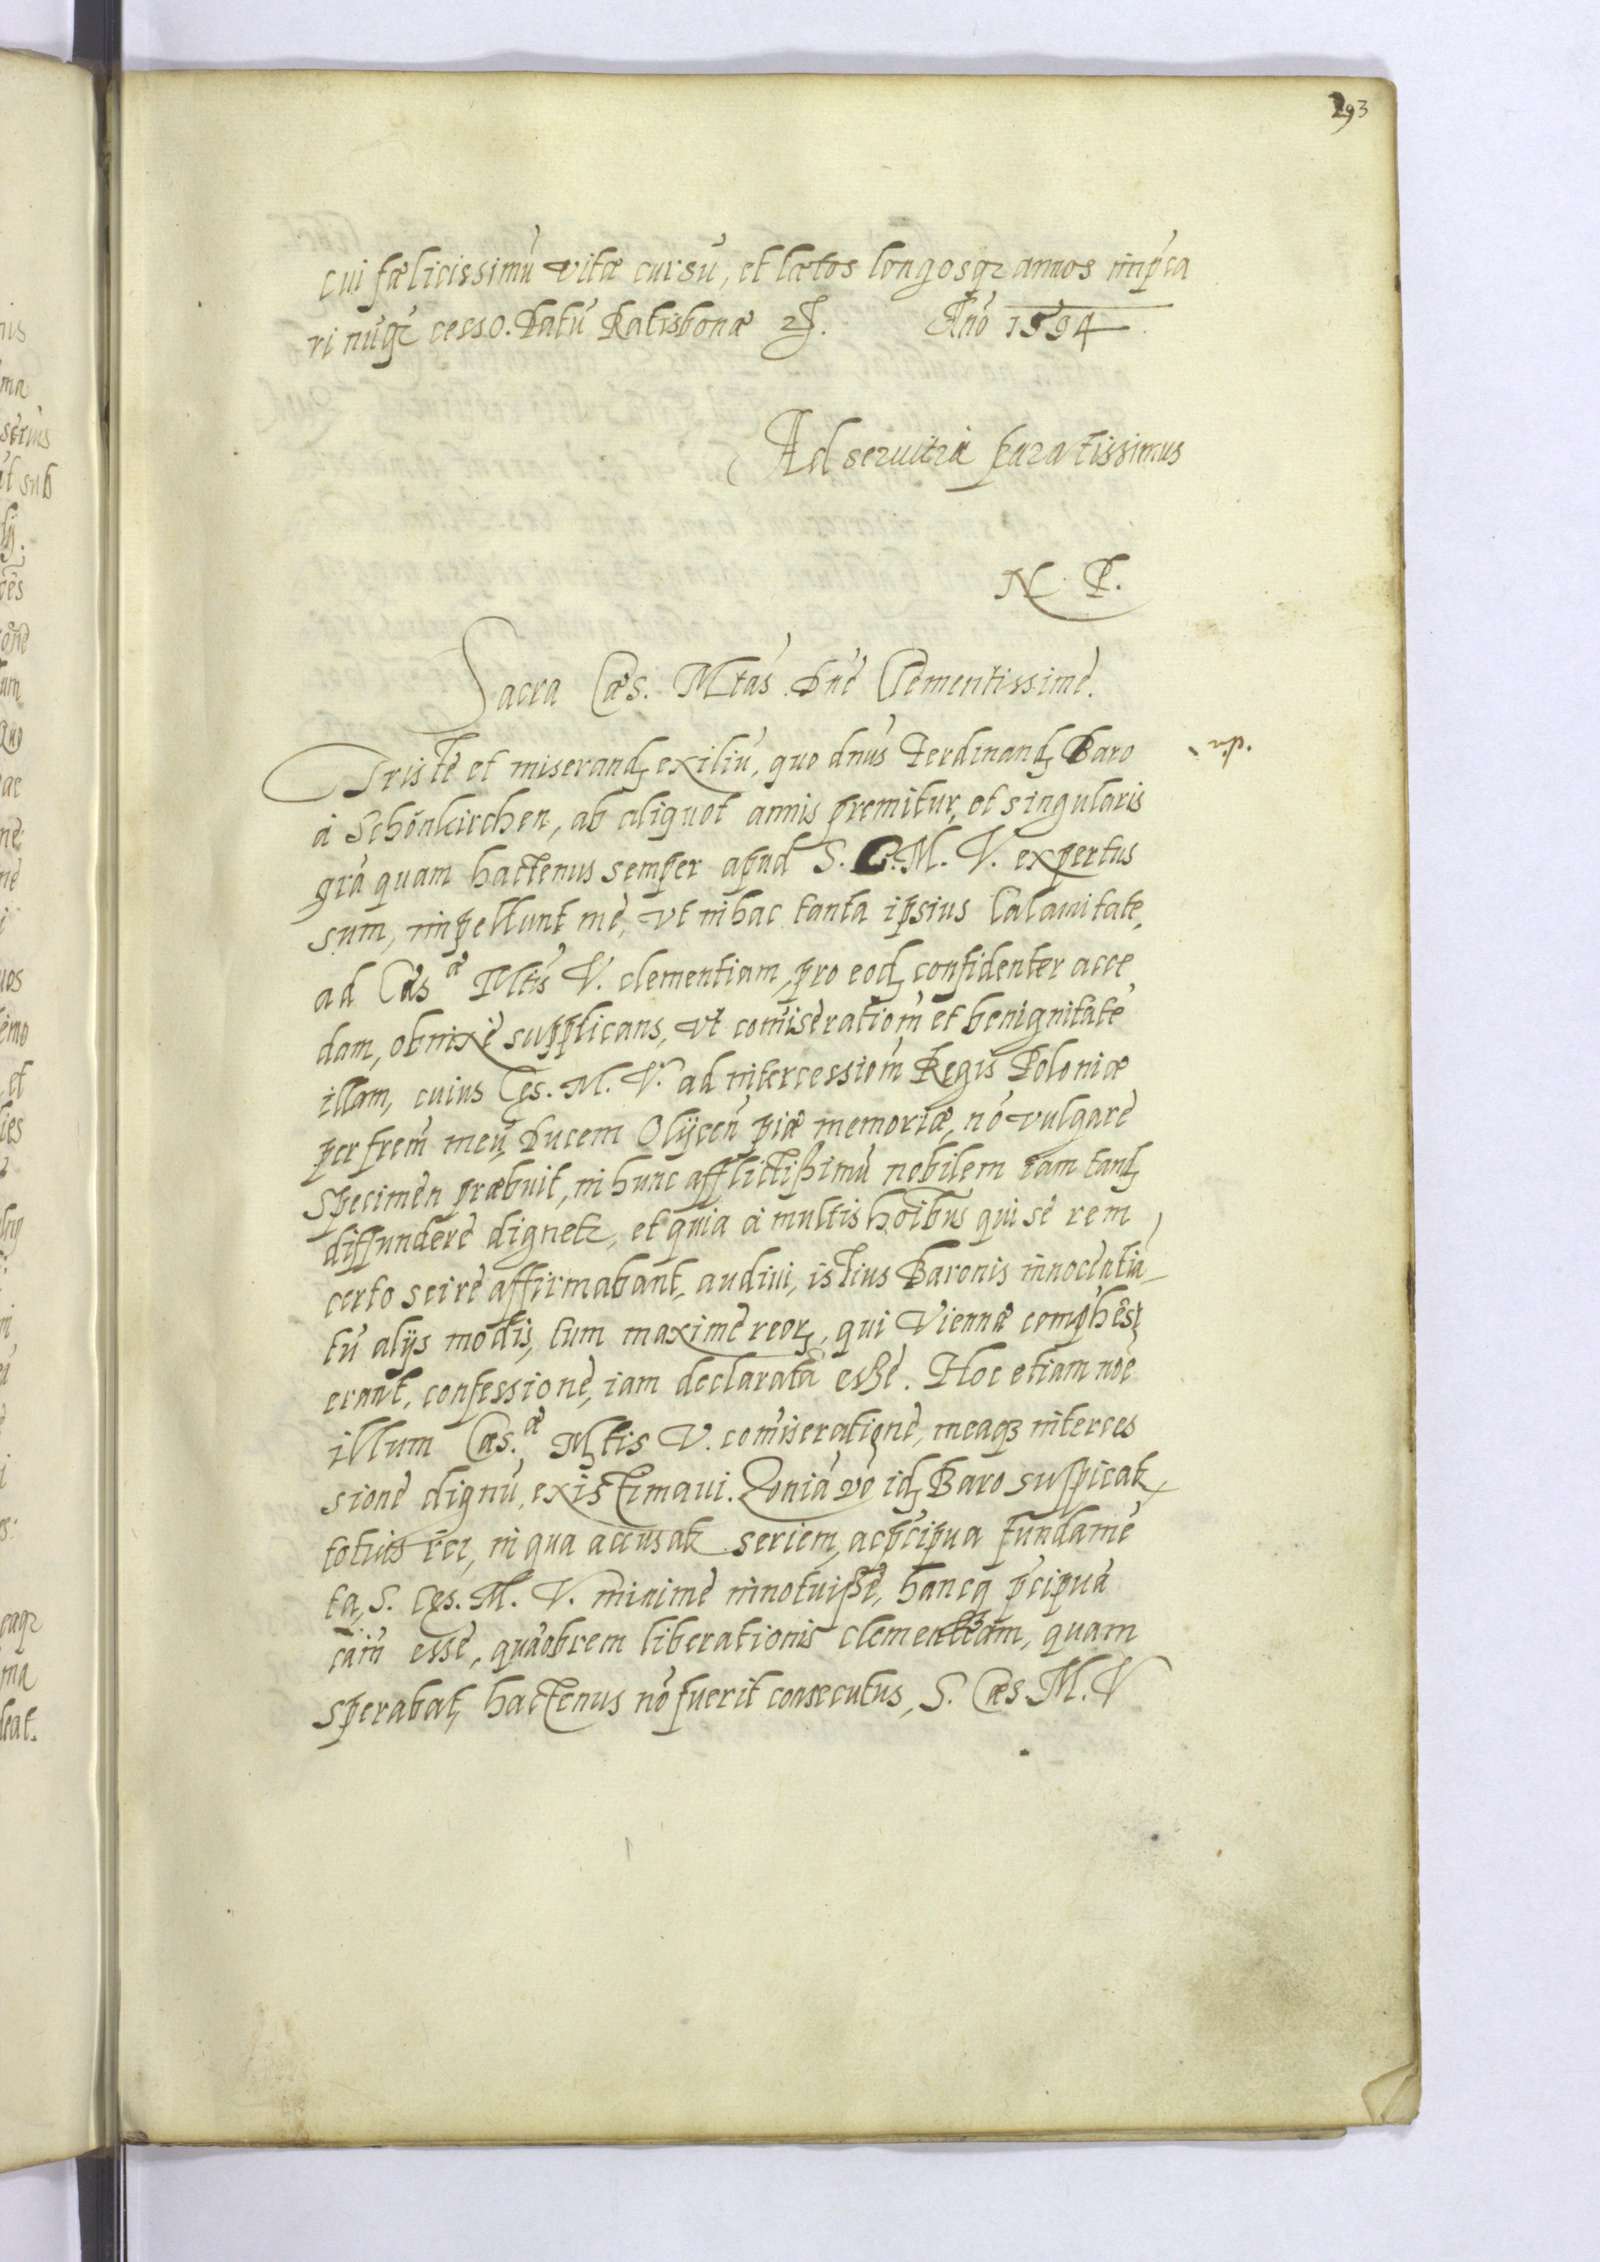 293
cui fælicissimũ vitæ cursũ, et lætos longosqz annos imp̃ca
ri nũqz cesso. Datũ Ratisbonæ Año 1594
Ad seruitia paratissimus
N. P.
Sacra Cæs. Mtas Dñe Clementissime.
Triste et miserandʒ exiliũ, quo dñus Ferdinandʒ Baro
à Schönkirchen, ab aliquot annis premitur, et singularis
gr̃a quam hactenus semper apud S. C. M. V. expertus
sum, impellunt me, vt in hac tanta ipsius Calamitate,
ad Cæsæ Mtis V. clementiam, pro eodʒ confidenter acce
dam, obnixè supplicans, vt com̃iseratiom̃ et benignitatẽ
illam, cuius Cęs. M. V. ad intercessiom̃ Regis Poloniæ
per frem̃ meũ, Ducem Olijceñ piæ memoriæ, nõ vulgare
specimen præbuit, in hunc afflictißimũ nobilem iam tandʒ
diffundere dignetz, et quia à multis hõibus qui se rem
certo scire affirmabant, audiui, istius Baronis innocentiã
tũ alijs modis, tum maxime reorʒ, qui Viennæ comp̃hẽsi
erant, confessione, iam declaratã eße. Hoc etiam noẽ
illum Cæs.æ Mtis V. com̃iseratione, meaqz interces
sione dignũ, existimaui. vẽ idʒ Baro suspicatz
totius rei, in qua accusatz seriem, ac p̃cipua fundamẽ
ta, S. Cęs. M. V. minime innotuiße, hancq p̃cipuã
cãm esse, quãobrem liberationis clementiam, quam
sperabat, hactenus nõ fuerit consecutus, S. Cæs M. V